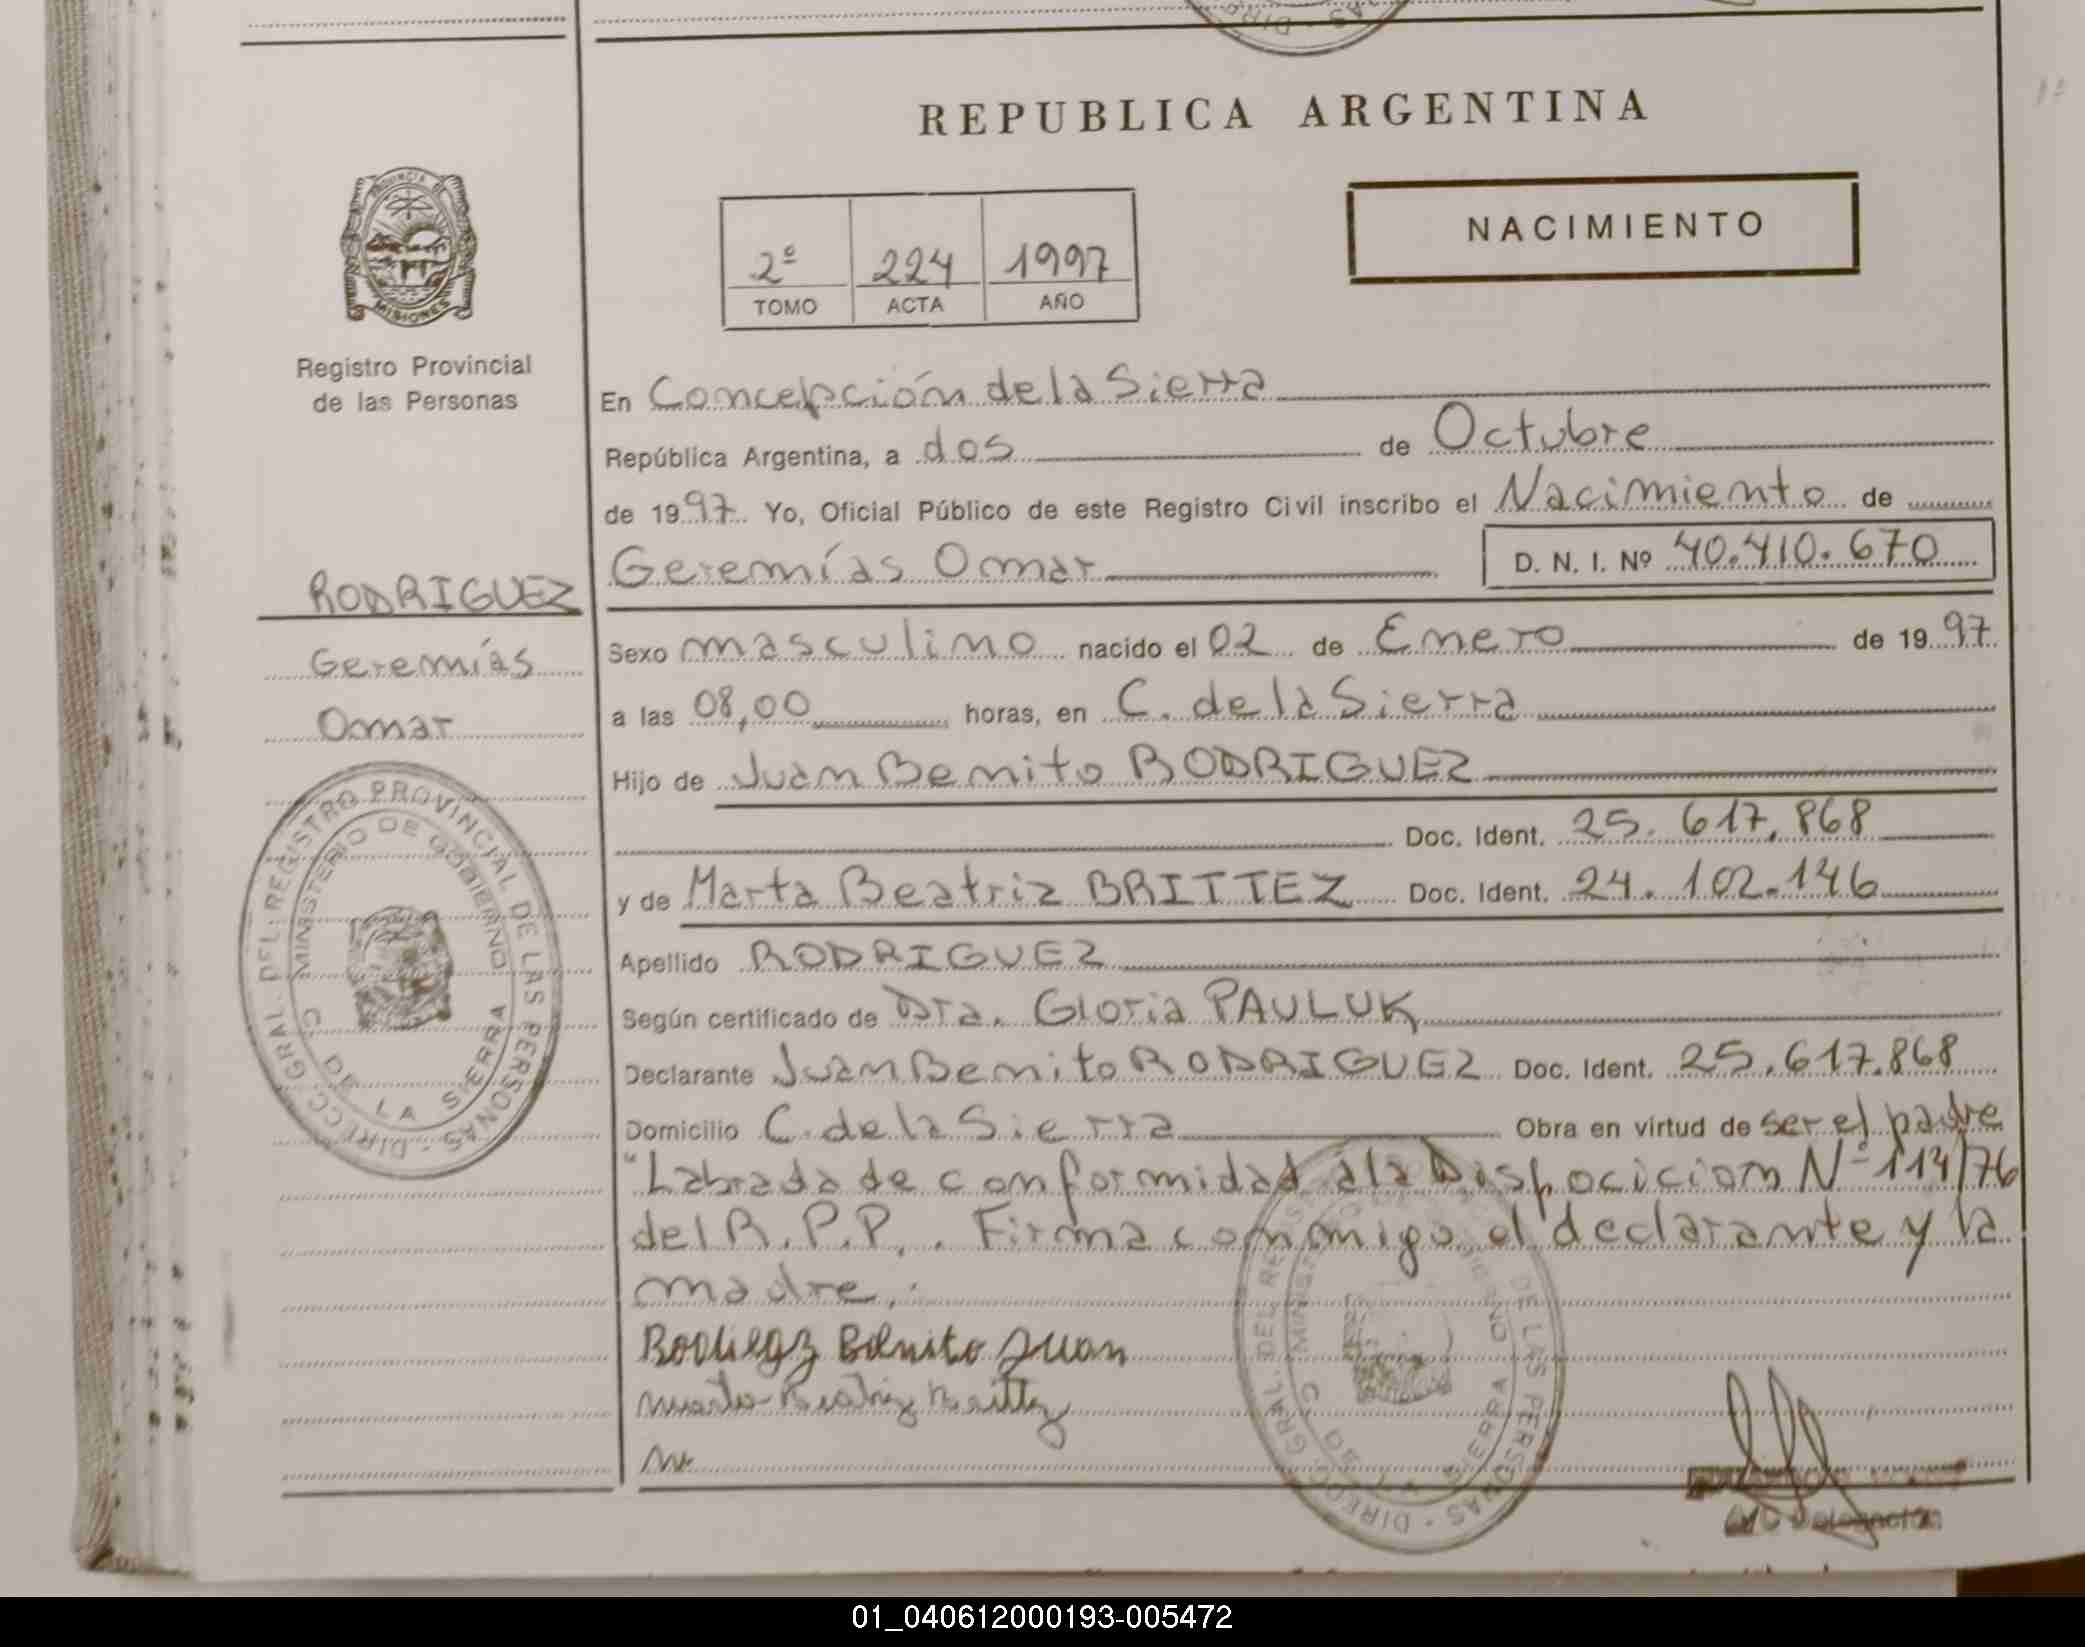 REPUBLICA ARGENTINA
NACIMIENTO
2º 224 1997
TOMO ACTA AÑO
PROVINCIA DE
MISIONES
Registro Provincial
de las Personas
RODRIGUEZ
Geremías
Omar
En Concepción de la Sierra
República Argentina, a dos de Octubre
de 1997 Yo, Oficial Público de este Registro Civil inscribo el Nacimiento de
Geremías Omar D. N. I. Nº 40.410.670
Sexo masculino nacido el 02 de Enero de 1997
a las 08,00 horas, en C. de la Sierra
Hijo de Juan Benito RODRIGUEZ
Doc. Ident. 25.617.868
y de Marta Beatriz BRITTEZ Doc. Ident. 24.102.146
Apellido RODRIGUEZ
Según certificado de Dra. Gloria PAULUK
Declarante Juan Benito RODRIGUEZ Doc. Ident. 25.617.868
Domicilio C. de la Sierra Obra en virtud de ser el padre
"Labrada de conformidad a la Disposicicion Nº 114/76
del R.P.P.. Firma conmigo el declarante y la
madre.
Benito Juan
DIRECC. GRAL. DEL REGISTRO PROVINCIAL DE LAS PERSONAS
MINISTERIO DE GOBIERNO
C. DE LA SIERRA
DIRECC. GRAL. DEL REGISTRO PROVINCIAL DE LAS PERSONAS
C. DE LA SIERRA
Delegación
01_040612000193-005472